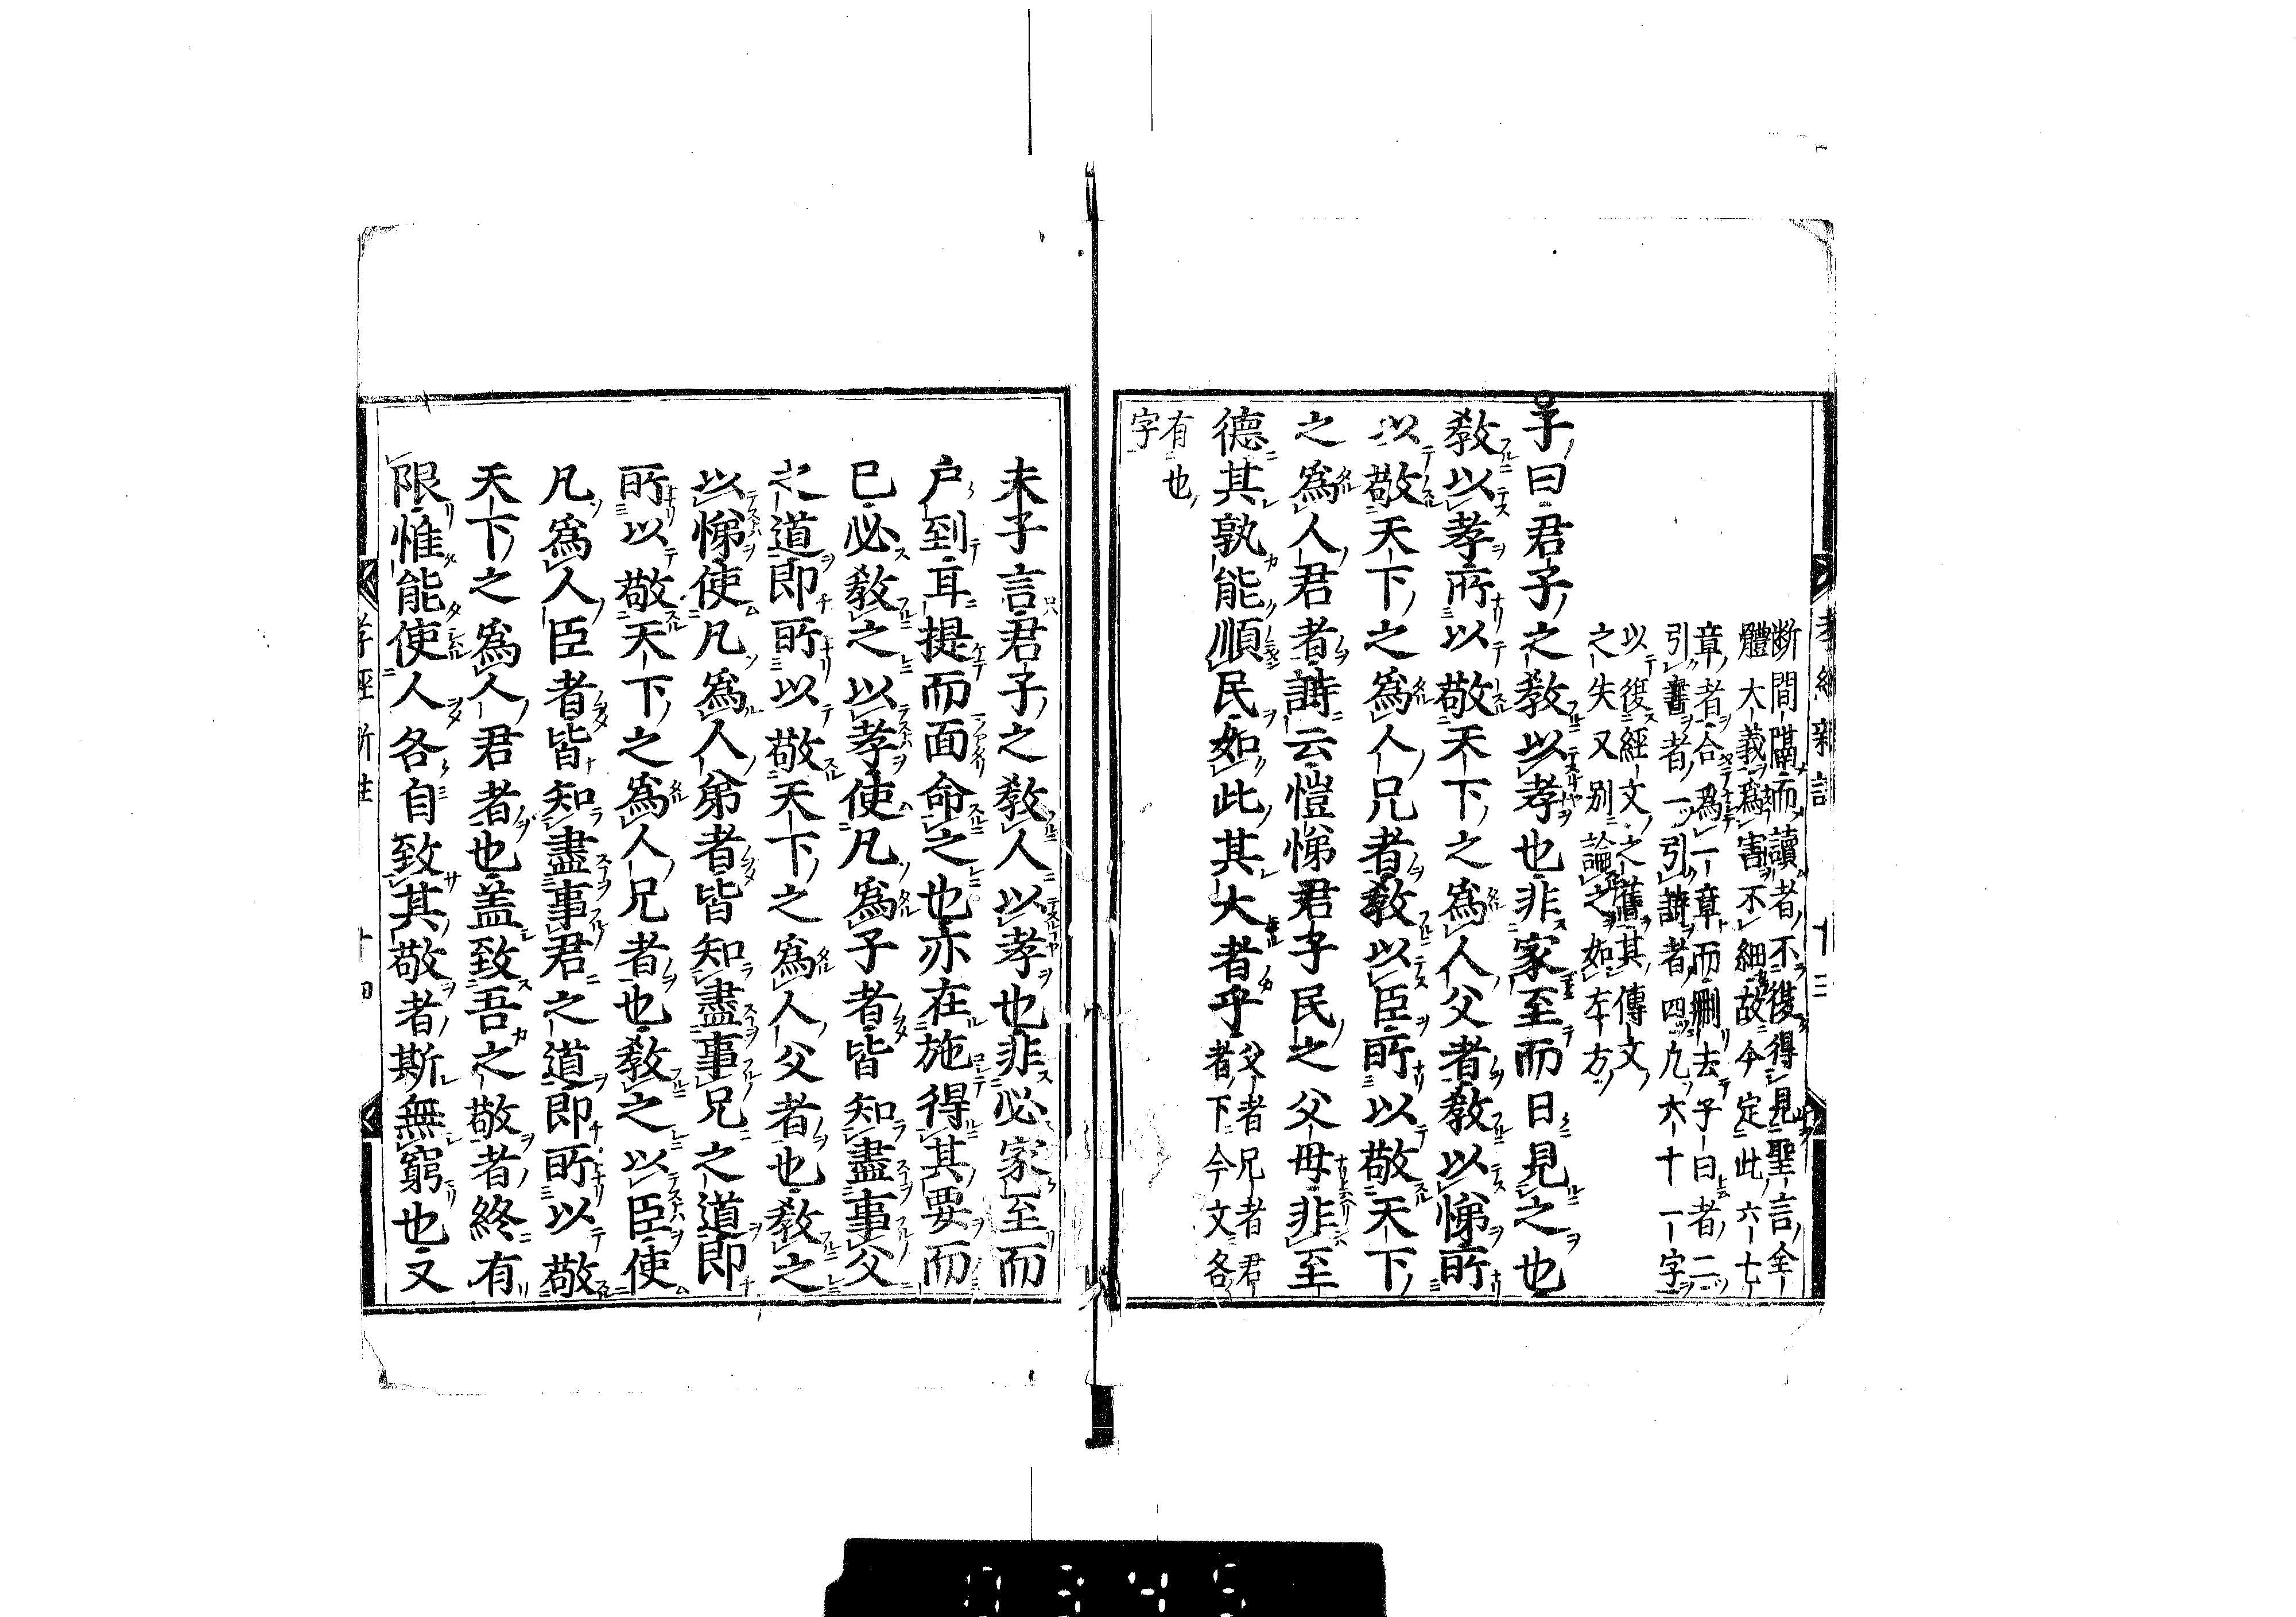 断間隔而讀者不復得見聖言全
體大義爲害不細故今定此六七
章者合爲一章而刪去子曰者二
引書者一引詩者四凡六十一字
以復經文之舊其傳文
之失又別論之如左方
子曰君子之教以孝也非家至而日見之也
教以孝所以敬天下之爲人父者教以悌所
以敬天下之爲人兄者教以臣所以敬天下
之爲人君者詩云愷悌君子民之父母非至
德其孰能順民如此其大者乎父者兄者君
者下今文各
有也
字
夫子言君子之教人以孝也非必家至而
户到耳提而面命之也亦在施得其要而
已必教之以孝使凡爲子者皆知盡事父
之道即所以敬天下之爲人父者也教之
以悌使凡爲人弟者皆知盡事兄之道即
所以敬天下之爲人兄者也教之以臣使
凡爲人臣者皆知盡事君之道即所以敬
天下之爲人君者也盖致吾之敬者終有
限惟能使人各自致其敬者斯無窮也又